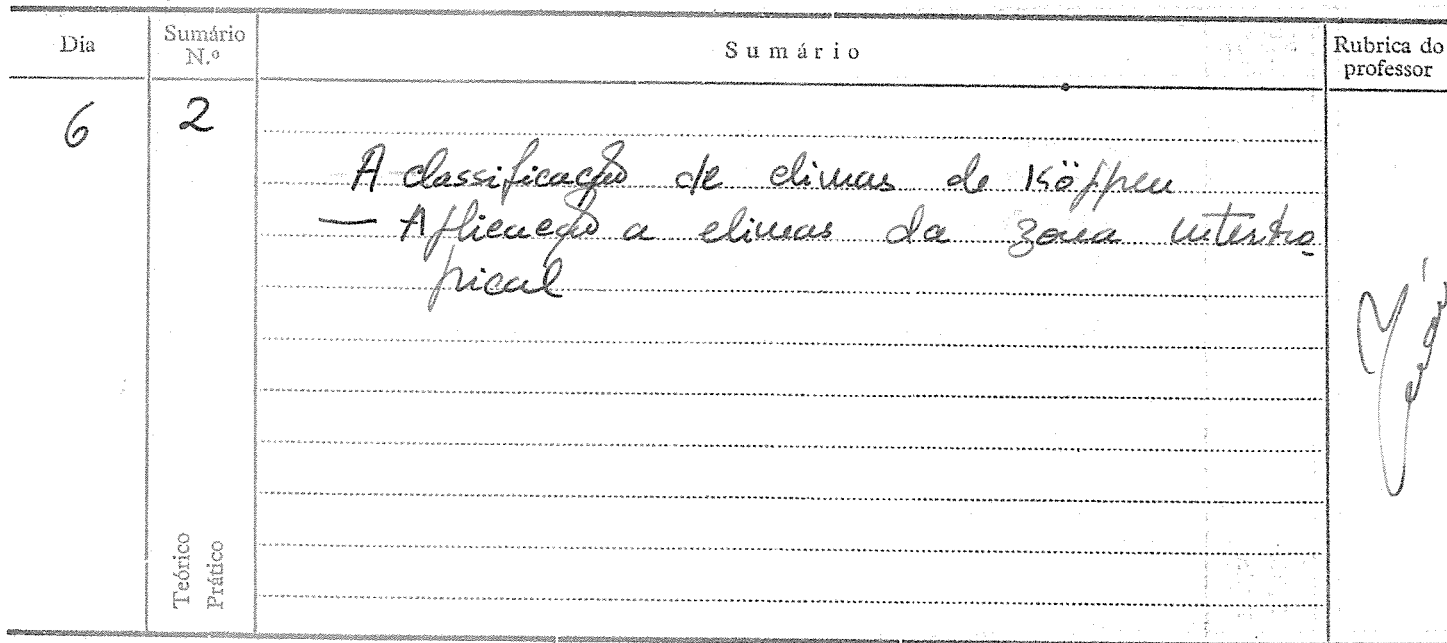 Dia
Sumário N.º
Sumário
Rubrica do professor
6
2
A classificação de climas de Köppen
— Aplicação a climas da zona intertro-
pical
Teórico
Prático